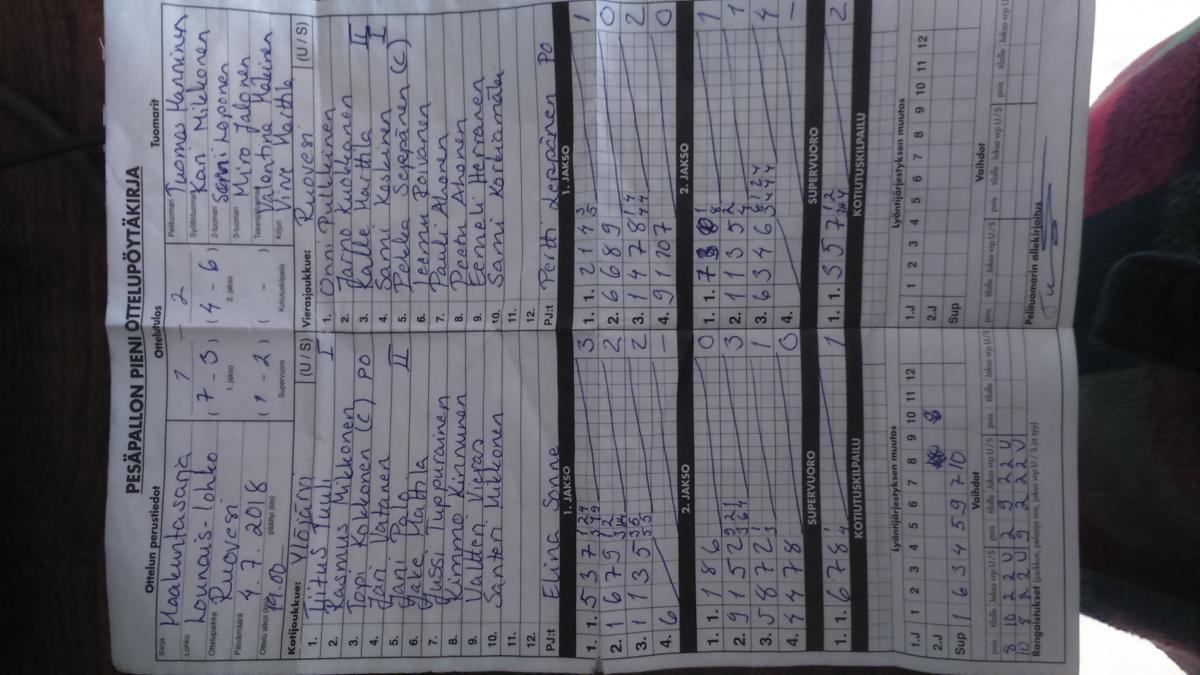 PESÄPALLON PIENI OTTELUPÖYTÄKIRJA
Ottelun perustiedot
Ottelutulos
Tuomarit
Sarja Maakuntasarja
Lohko Lounais-lohko
Ottelupaikka Ruovesi
Päivämäärä 4.7.2018
Ottelu alkoi (klo) 19.00 päättyi (klo)
1 - 2
(7 - 3) (4 - 6)
1. jakso 2. jakso
(1 - 2) ( - )
Supervuoro Kotiutuskilpailu
Pelituomari Tuomas Manninen
Syöttötuomari Kari Mikkonen
2-tuomari Sami Loponen
3-tuomari Miro Jalonen
Takarajatuomari Valentona Mäkinen
Kirjuri Virve Marttila
Kotijoukkue: Ylöjärvi (U / S)
1. Tiitus Tuuli I
2. Rasmus Mikkonen
3. Topi Kokkonen (C) PO
4. Jari Vatanen
5. Jani Palo II
6. Jake Mattila
7. Jussi Tuppurainen
8. Kimmo Kinnunen
9. Valtteri Vieras
10. Santeri Mikkonen
11.
12.
PJ:t Elina Sonne
Vierasjoukkue: Ruovesi (U / S)
1. Onni Pulkkinen
2. Jarmo Kuokkanen
3. Kalle Marttila II
4. Sami Koskinen I
5. Pekka Seppänen (C)
6. Teemu Poivanen
7. Pauli Ahonen
8. Preetu Ahonen
9. Eemeli Herranen
10. Sami Korkiamäki
11.
12.
PJ:t Pertti Leppänen PO
1. JAKSO
1. 1. 5 3 7 3
2. 1 6 7 9 2
3. 1 1 3 5 2
4. 6 -
2. JAKSO
1. 1. 1 8 6 0
2. 9 1 5 2 3
3. 5 8 7 2 1
4. 4 4 7 8 0
SUPERVUORO
1. 1. 6 7 8 4 1
KOTIUTUSKILPAILU
1. JAKSO
1. 1. 2 1 4 1
2. 6 6 8 9 0
3. 1 4 7 8 2
4. 9 1 10 7 0
2. JAKSO
1. 1. 7 1
2. 1 1 3 5 1
3. 6 3 4 6 4
4. -
SUPERVUORO
1. 1. 3 5 7 2
KOTIUTUSKILPAILU
Lyöntijärjestyksen muutos
1.J 1 2 3 4 5 6 7 8 9 10 11 12
2.J 8
Sup 1 6 3 4 5 9 7 10
Vaihdot
pois tilalle Jakso vrp U / S pois tilalle Jakso vrp U / S pois tilalle Jakso vrp U / S
8 10 2 2 U 2 9 2 2 U
10 8 2 2 U 9 2 2 2 U
Rangaistukset (joukkue, pelaaja nro, jakso vrp U / S ja syy)
Lyöntijärjestyksen muutos
1.J 1 2 3 4 5 6 7 8 9 10 11 12
2.J
Sup
Vaihdot
pois tilalle Jakso vrp U / S pois tilalle Jakso vrp U / S pois tilalle Jakso vrp U / S
Pelituomarin allekirjoitus